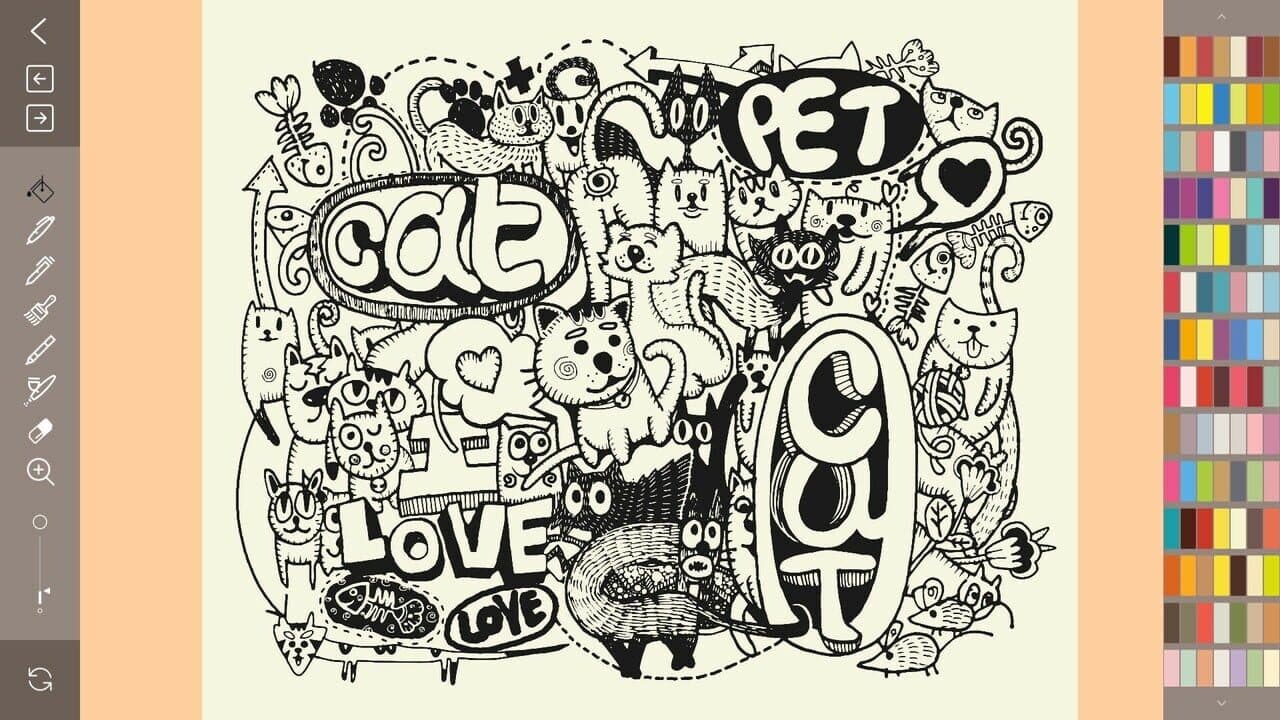 PET
cat
I
CaT
LOVE
LOVE